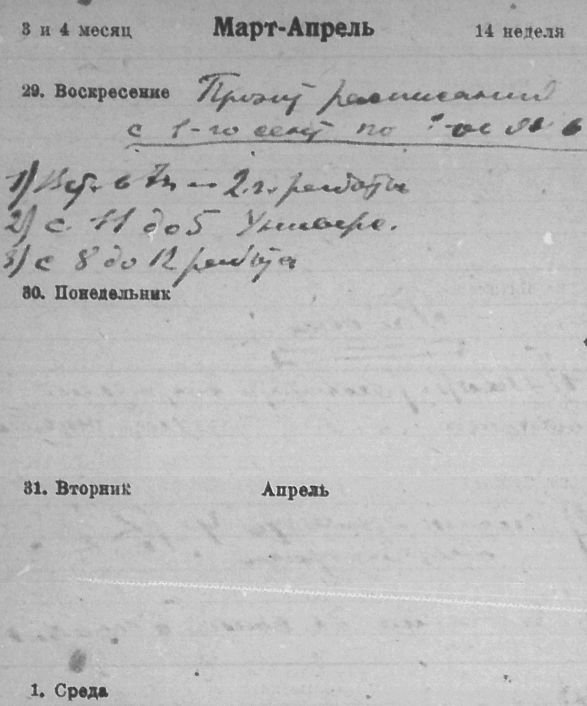 3 и 4 месяц Март-Апрель 14 неделя
29. Воскресение Проэкт расписаний
с 1-го сент по
1) Вст. в 7ч — 2 г. работы
2) с 11 до 5 Универс.
3) с 8 до 12 работа
30. Понедельник
31. Вторник Апрель
1. Среда